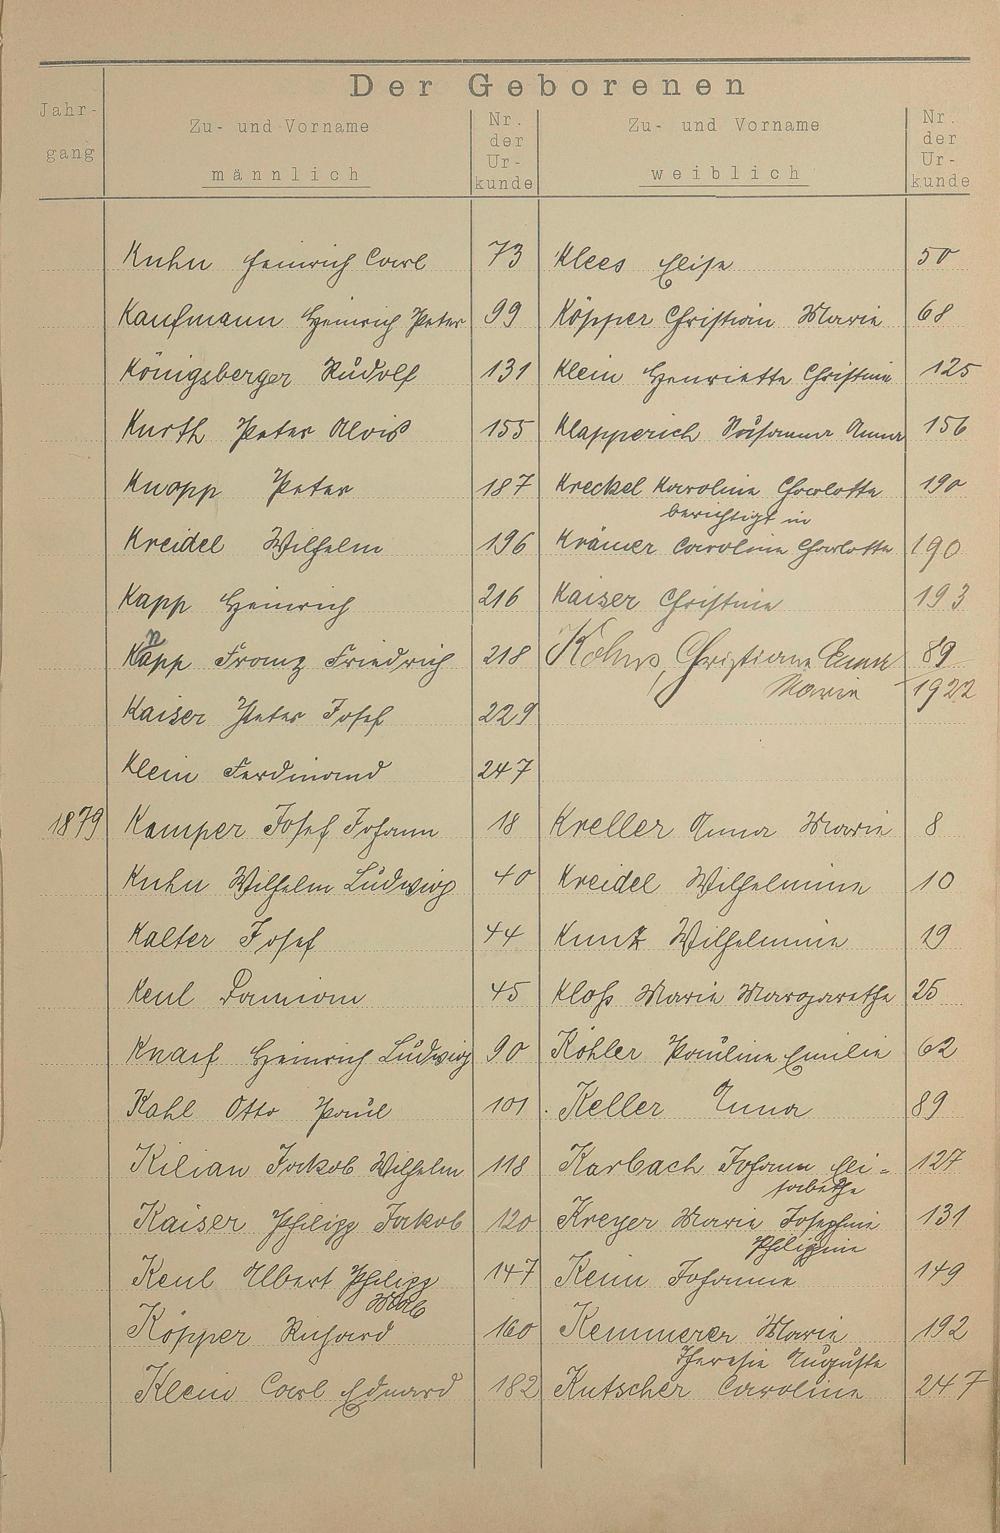 Der Geborenen
Jahr-
gang
Zu- und Vorname
männlich
Nr.
der
Ur-
kunde
Zu- und Vorname
weiblich
Nr.
der
Ur-
kunde
Kuhn Heinrich Carl 73 Klees Elise 50
Kaufmann Heinrich Peter 99 Köpper Christian Marie 68
Königsberger Rudolf 131 Klein Henriette Christine 125
Kurth Peter Alois 155 Klapperich Susanna Anna 156
Knopp Peter 187 Kreckel Karoline Charlotte 190
berichtigt in
Kreidel Wilhelm 196 Krämer Caroline Charlotte 190
Kapp Heinrich 216 Kaiser Christine 193
n
Kapp Franz Friedrich 218 Christiane Emma 89
Marie 1922
Kaiser Peter Josef 229
Klein Ferdinand 247
1879 Kamper Josef Johann 18 Kreller Anna Marie 8
Kuhn Wilhelm Ludwig 40 Kreidel Wilhelmine 10
Kalter Josef 44 Kuntz Wilhelmine 19
Keul Damian 45 Kloß Marie Margarethe 25
Knarf Heinrich Ludwig 90 Köhler Pauline Emilie 62
Kahl Otto Paul 101 Keller Anna 89
Kilian Jakob Wilhelm 118 Karbach Johann Eli- 127
sabethe
Kaiser Philipp Jakob 120 Kreyer Marie Josephine 131
Philippine
Keul Albert Philipp 147 Keim Johanna 149
Köpper Richard 160 Kemmerer Marie 192
Theresie Auguste
Klein Carl Eduard 182 Kutscher Caroline 247